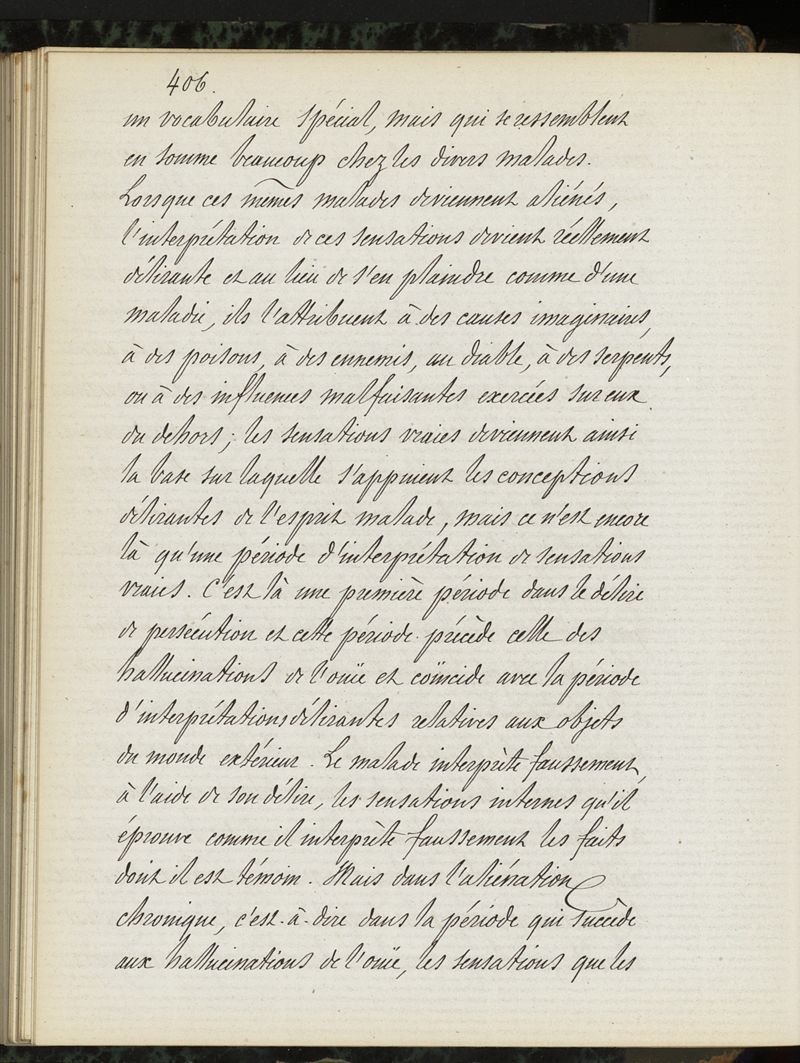 406.
un vocabulaire spécial, mais qui se ressemblent
en somme beaucoup chez les divers malades.
Lorsque ces mêmes malades deviennent aliénés,
l'interprétation de ces sensations devient réellement
délirante et au lieu de s'en plaindre comme d'une
maladie, ils l'attribuent à des causes imaginaires,
à des poisons, à des ennemis, au diable, à des serpents,
ou à des influences malfaisantes exercées sur eux
du dehors; les sensations vraies deviennent ainsi
la base sur laquelle s'appuient les conceptions
délirantes de l'esprit malade, mais ce n'est encore
là qu'une période d'interprétation de sensations
vraies. C'est là une première période dans le délire
de persécution et cette période précède celle des
hallucinations de l'ouïe et coïncide avec la période
d'interprétations délirantes relatives aux objets
du monde extérieur. Le malade interprète faussement,
à l'aide de son délire, les sensations internes qu'il
éprouve comme il interprète faussement les faits
dont il est témoin. Mais dans l'aliénation
chronique, c'est-à-dire dans la période qui succède
aux hallucinations de l'ouïe, les sensations que les